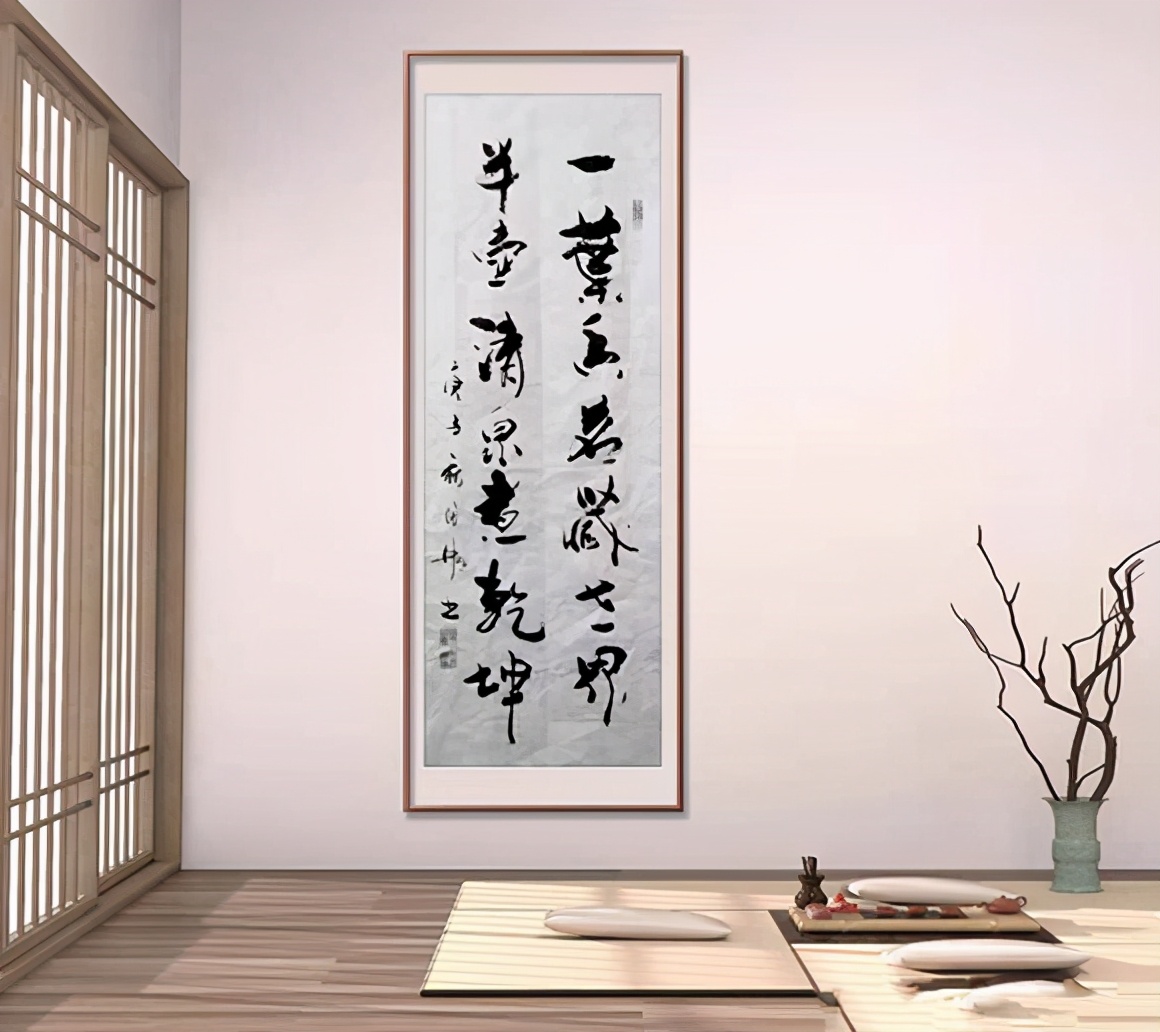 一葉香茗藏世界
半壺清泉煮乾坤
庚子秋